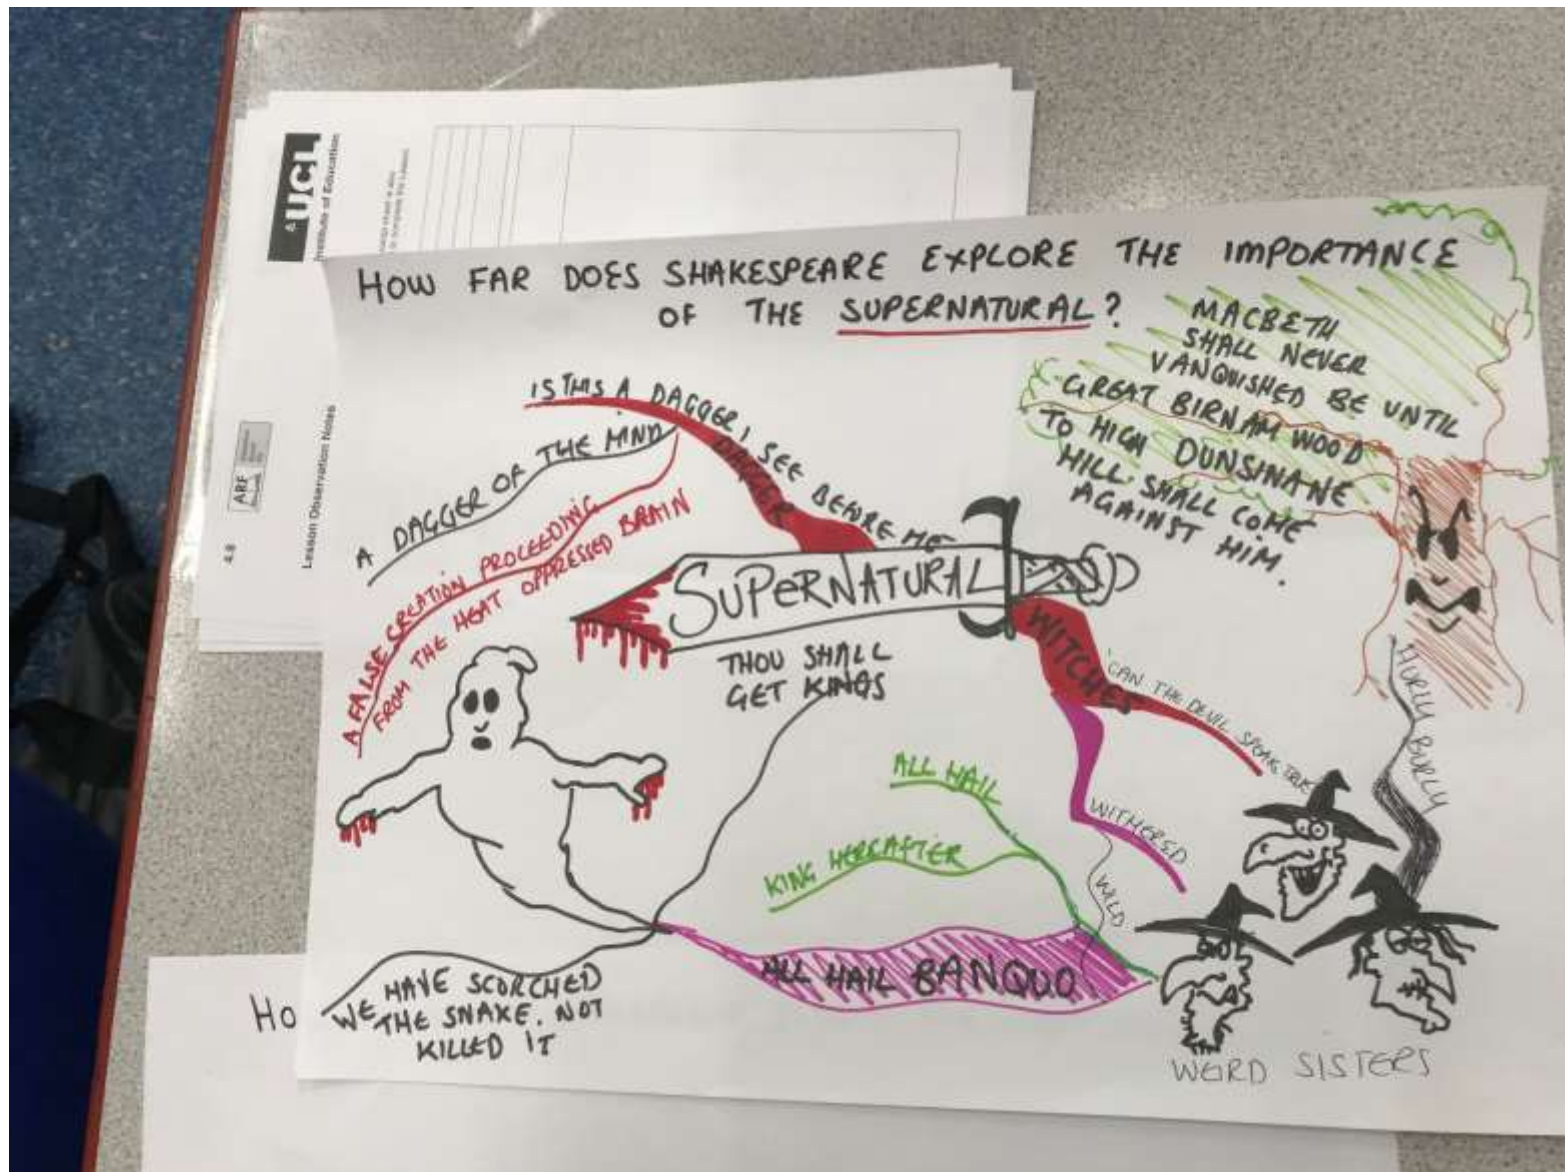 UCL
Institute of Education
ARF
4.6
Lesson Observation Notes
HOW FAR DOES SHAKESPEARE EXPLORE THE IMPORTANCE
OF THE SUPERNATURAL?
MACBETH
SHALL NEVER
VANQUISHED BE UNTIL
GREAT BIRNAM WOOD
TO HIGH DUNSINANE
HILL SHALL COME
AGAINST HIM.
IS THIS A DAGGER I SEE BEFORE ME
DAGGER
A DAGGER OF THE MIND
A FALSE CREATION PROCEEDING
FROM THE HEAT OPPRESSED BRAIN
SUPERNATURAL
THOU SHALL
GET KINGS
WITCHES
'CAN THE DEVIL SPEAK TRUE
HURLY BURLY
WITHERED
WILD
ALL HAIL
KING HEREAFTER
ALL HAIL BANQUO
WE HAVE SCORCHED
THE SNAKE. NOT
KILLED IT
WEIRD SISTERS
Ho